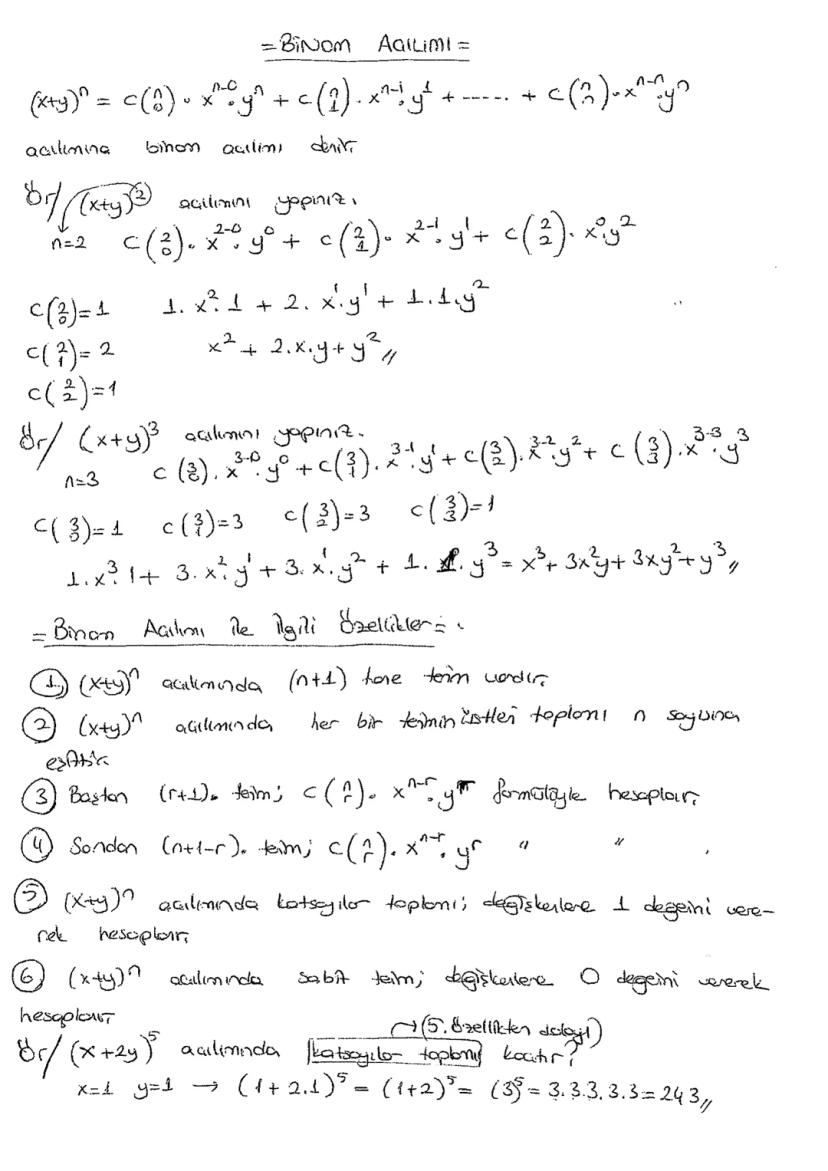 = BİNOM AÇILIMI =
(x+y)^n = C(n 0) · x^(n-0) · y^n + C(n 1) · x^(n-1) · y^1 + ----- + C(n n) · x^(n-n) · y^n
açılımına binom açılımı denir.
Ör/ (x+y)^2 açılımını yapınız.
n=2 C(2 0) · x^(2-0) · y^0 + C(2 1) · x^(2-1) · y^1 + C(2 2) · x^0 · y^2
C(2 0)=1 1. x^2. 1 + 2. x^1. y^1 + 1.1.y^2
C(2 1)=2 x^2 + 2.x.y + y^2 //
C(2 2)=1
Ör/ (x+y)^3 açılımını yapınız.
n=3 C(3 0). x^(3-0). y^0 + C(3 1). x^(3-1). y^1 + C(3 2). x^(3-2). y^2 + C(3 3). x^(3-3). y^3
C(3 0)=1 C(3 1)=3 C(3 2)=3 C(3 3)=1
1.x^3.1 + 3.x^2.y^1 + 3.x^1.y^2 + 1.1.y^3 = x^3+3x^2y+3xy^2+y^3 //
= Binom Açılımı ile ilgili Özellikler =
1) (x+y)^n açılımında (n+1) tane terim vardır.
2 (x+y)^n açılımında her bir terimin üstleri toplamı n sayısına
eşittir.
3 Baştan (r+1). terim; C(n r). x^(n-r). y^r formülüyle hesaplanır.
4 Sondan (n+1-r). terim; C(n r). x^(n-r). y^r " "
5 (x+y)^n açılımında katsayılar toplamı; değişkenlere 1 değerini vere-
rek hesaplanır.
6 (x+y)^n açılımında sabit terim; değişkenlere 0 değerini vererek
hesaplanır.
→(5. özellikten dolayı)
Ör/ (x+2y)^5 açılımında katsayılar toplamı kaçtır?
x=1 y=1 → (1+2.1)^5 = (1+2)^5 = (3)^5 = 3.3.3.3.3=243 //